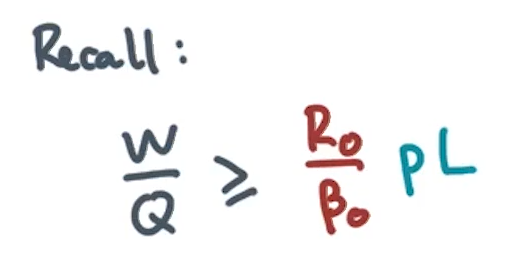 Recall:
W/Q ≥ R₀/β₀ pL